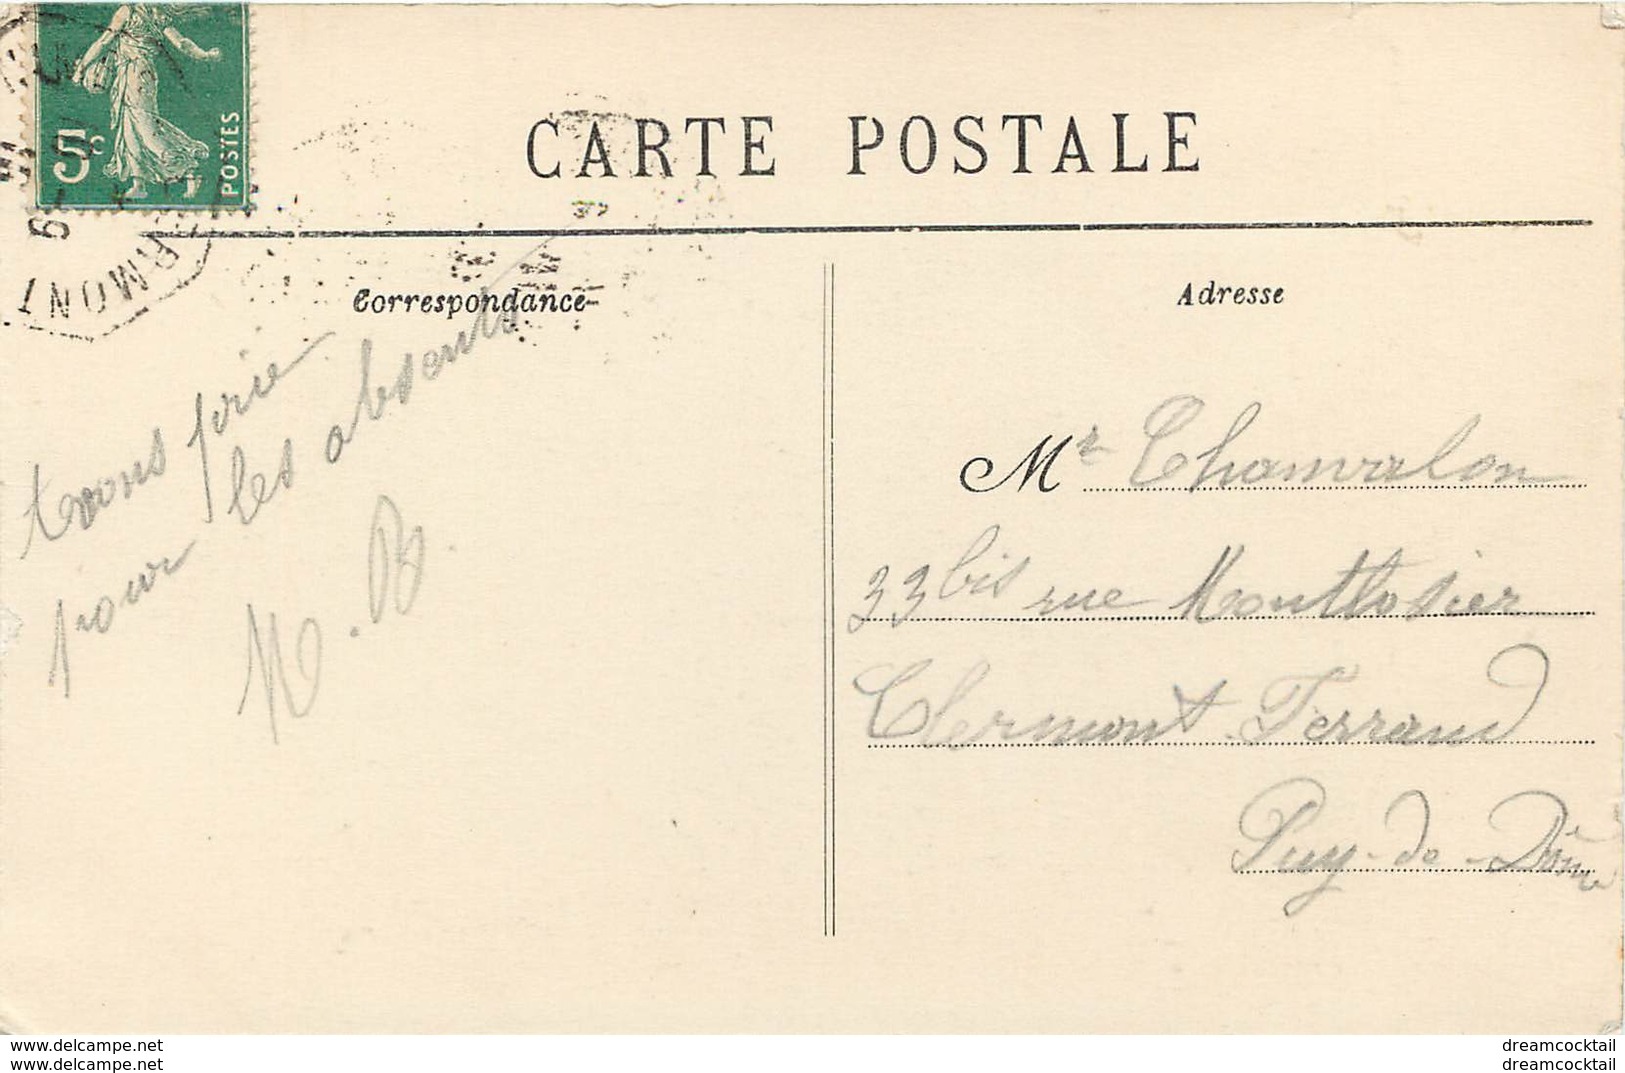 5c
POSTES
RMONT
CARTE POSTALE
Correspondance
Adresse
avons prié
pour les absents
M. B.
Mr Chamvalon
33 bis rue Montlosier
Clermont Ferrand
Puy-de-Dôme
dreamcocktail
dreamcocktail
dreamcocktail
dreamcocktail